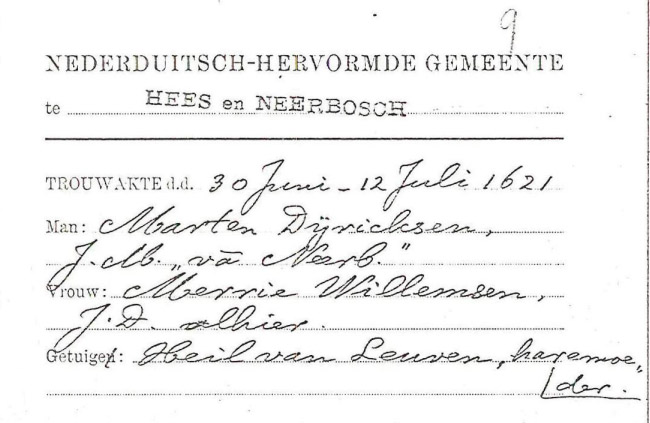 9
NEDERDUITSCH-HERVORMDE GEMEENTE
te HEES en NEERBOSCH
TROUWAKTE d.d. 30 Juni - 12 Juli 1621
Man: Marten Dÿricksen,
J.M. „vā Neerb."
Vrouw: Merrie Willemsen,
J.D. alhier.
Getuigen: Heil van Leuven, haremoe„
der.